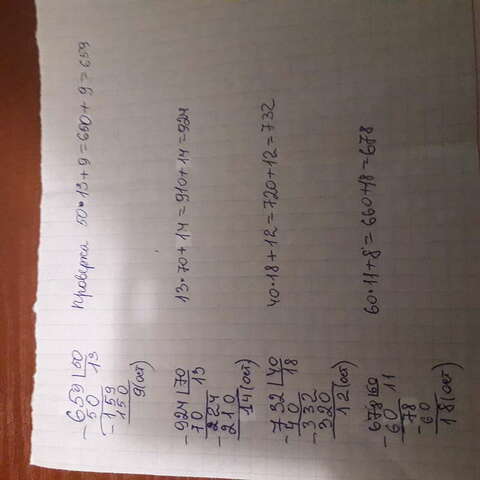 - 659 |50    Проверка 50•13+9=650+9=659
50    13
- 159
150
9(ост)
- 924 |70    13•70+14=910+14=924
70    13
- 224
210
14(ост)
- 732 |40    40•18+12=720+12=732
40    18
- 332
320
12(ост)
- 678 |60    60•11+8=660+18=678
60    11
- 78
60
18(ост)